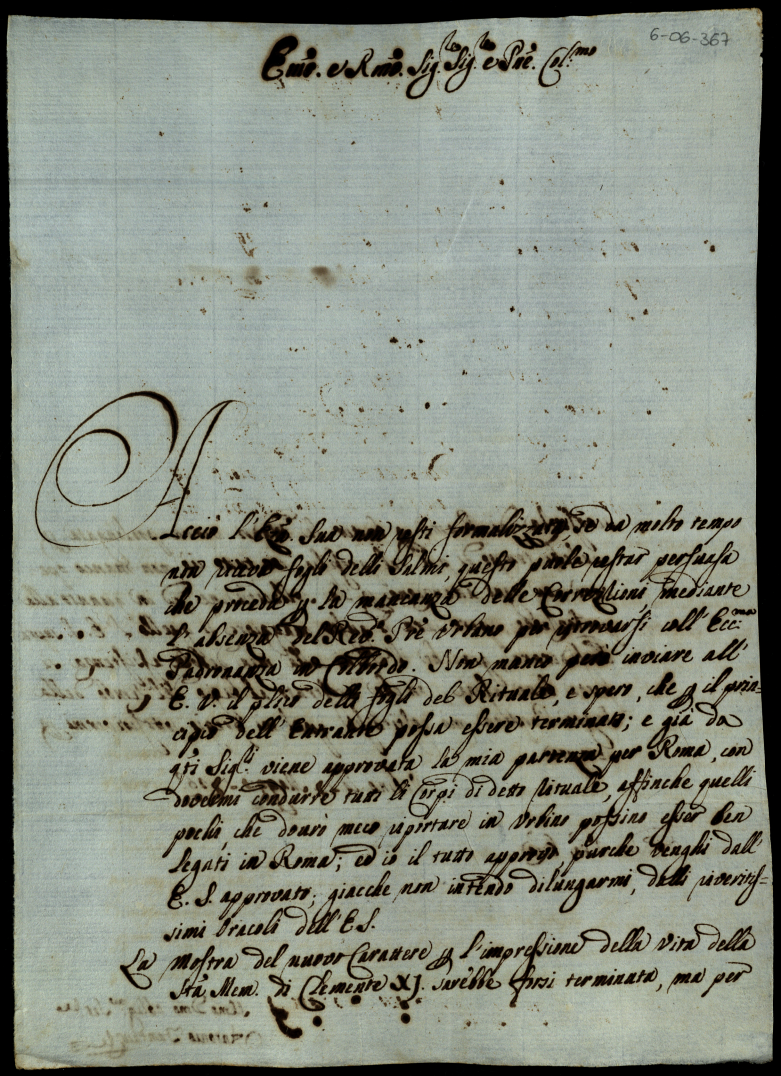 6-06-367
Emo. e Rmo. Sig.re Sig.re e Pñe. Col.mo
Acciò l'Em̃a. Sua non resti formalizzata, se da molto tempo
non riceve fogli delli Salmi, questo puole restar persuasa
che proceda p la mancanza delle Correzzioni mediante
l'absenza del Red.o Prẽ Urbano per ritrovarsi coll'Ecc.ma
Padronanza in . Non manco però inviare all'
E. V. il plico delli fogli del Rituale, e spero, che p il prin=
cipio dell'entrante possa essere terminato; e già da
qti Sig.ri viene approvata la mia partenza per Roma, con
dovermi condurre tutti li Corpi di detto Rituale, affinche quelli
pochi, che dourò meco riportare in Urbino possino esser ben
legati in Roma; ed io il tutto approvo, purche venghi dall'
E. S. approvato, giacche non intendo dilungarmi, dalli riveritis=
simi Oracoli dell'E.S.
La mostra del nuovo Carattere p l'impressione della vita della
Sta. Mem. di Clemente XI. sarebbe forsi terminata, ma per